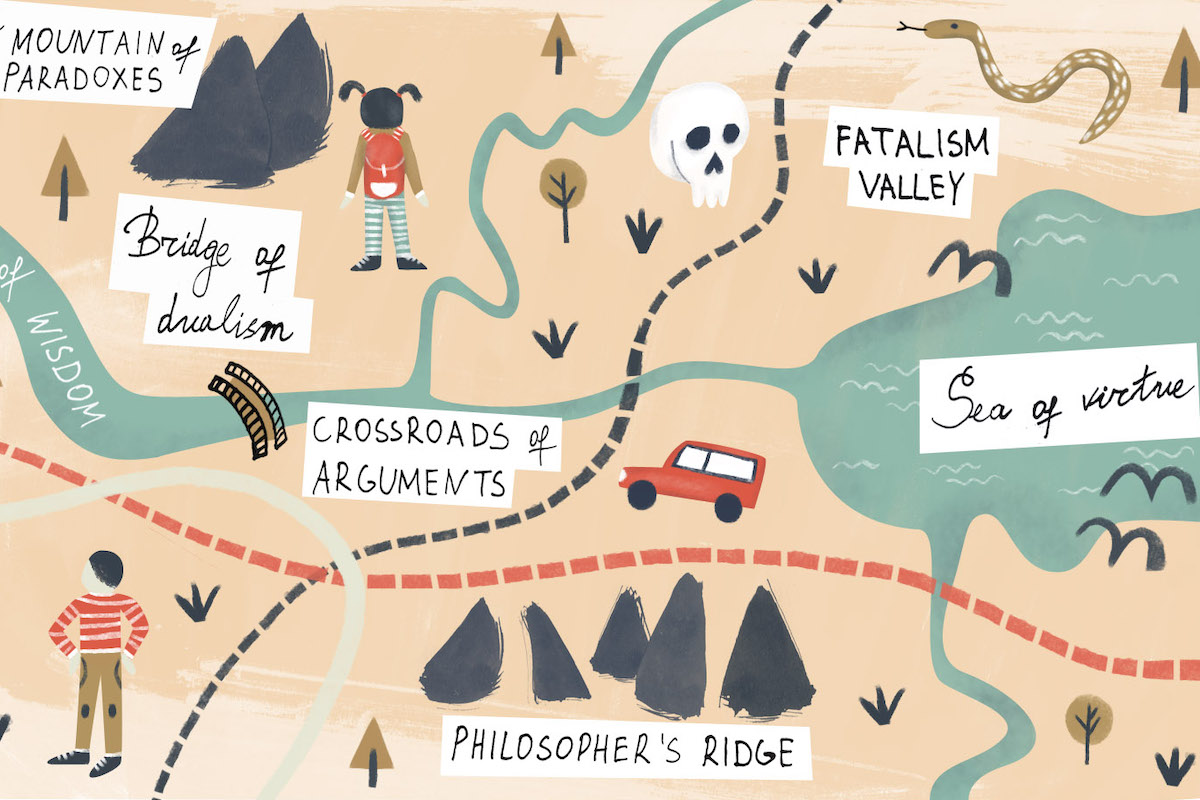 MOUNTAIN of
PARADOXES
FATALISM
VALLEY
Bridge of
dualism
of WISDOM
Sea of virtue
CROSSROADS of
ARGUMENTS
PHILOSOPHER'S RIDGE